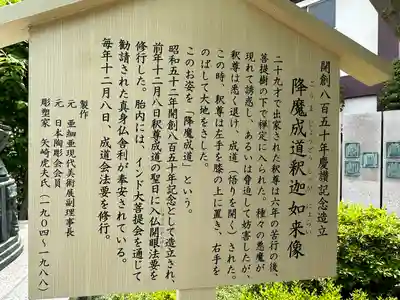 開創八百五十年慶讃記念造立
降魔成道釈迦如来像
こうまじょうどうしゃかにょらいぞう
二十九才で出家された釈尊は六年の苦行の後、
菩提樹の下で禅定に入られた。種々の悪魔が
現れて誘惑し、あるいは脅迫して妨害したが、
釈尊は悉く退け、成道(悟りを開く)された。
この時、釈尊は左手を膝の上に置き、右手を
のばして大地をさした。
このお姿を「降魔成道」という。
昭和五十二年開創八百五十年記念として造立され、
前年十二月八日釈尊成道の聖日に入仏開眼法要を
修行した。胎内には、インド大菩提会を通じて
勧請された真身仏舎利が奉安されている。
毎年十二月八日、成道会法要を修行。
製作
元 亜細亜現代美術展副理事長
元 日本陶彫会会員
彫塑家 矢崎虎夫氏(一九〇四~一九八八)